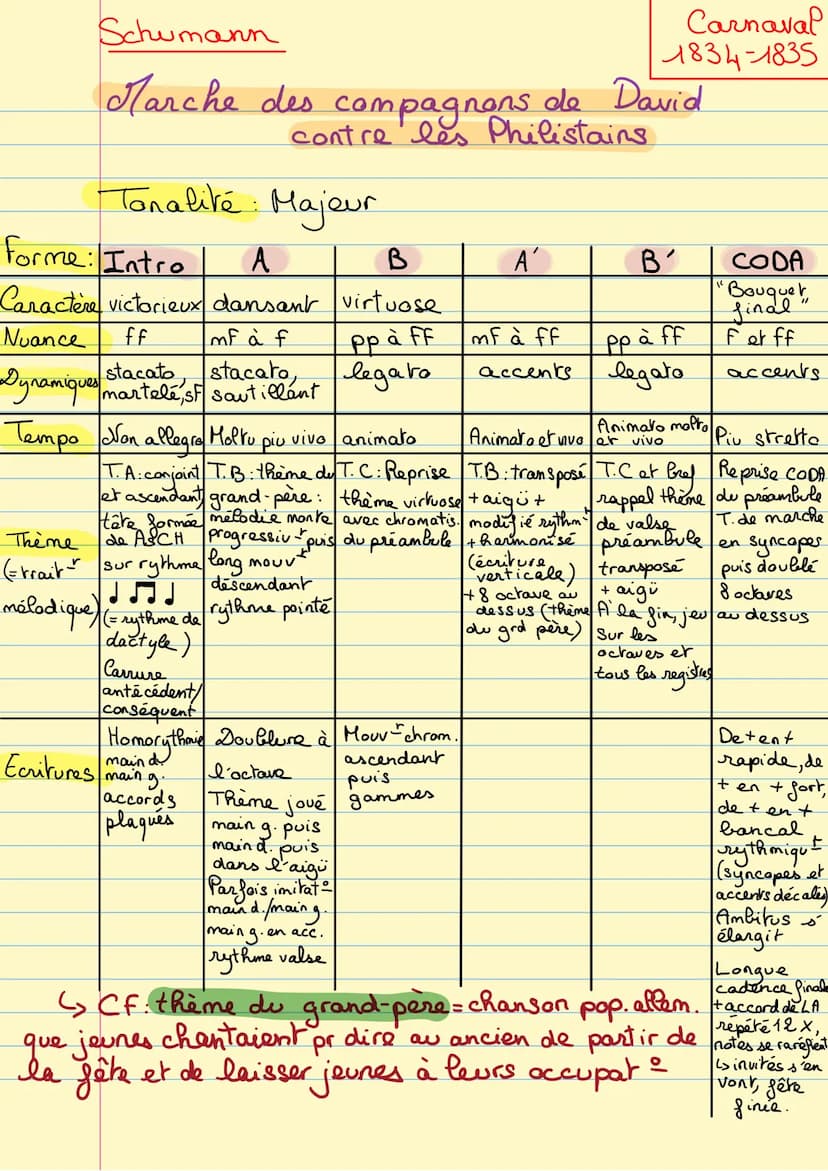 Schumann
Carnaval
1834-1835
Marche des compagnons de David
contre les Philistains
Tonalité : Majeur
Forme: Intro A B A' B' CODA
Caractère victorieux dansant virtuose "Bouquet final"
Nuance ff mF à f pp à FF mF à ff pp à FF F et ff
Dynamiques stacato, martelé, sF stacato, sautillant legato accents legato accents
Tempo Non allegro Moltu piu vivo animato Animato et vivo Animato molto et vivo Piu stretto
Thème
(= trait mélodique)
T.A: conjoint
et ascendant,
tête formée
de ASCH
sur rythme
♩♫♩
(= rythme de
dactyle)
Carrure
antécédent/
conséquent
T.B: thème du
grand-père:
mélodie monte
progressivt puis
long mouvt
descendant
rythme pointé
T.C: Reprise
thème virtuose
avec chromatis.
du préambule
T.B: transposé
+ aigü +
modifié rythmt
+ harmonisé
(écriture
verticale)
+ 8 octave au
dessus (thème
du grd père)
T.C et bref
rappel thème
de valse
préambule
transposé
+ aigü
A la fin, jeu
sur les
octaves et
tous les registres
Reprise CODA
du préambule
T. de marche
en syncopes
puis doublé
8 octaves
au dessus
Ecritures
Homorythmie
main d.
main g.
accords
plaqués
Doublure à
l'octave
Thème joué
main g. puis
main d. puis
dans l'aigü
Parfois imitato
main d./main g.
main g. en acc.
rythme valse
Mouvt chrom.
ascendant
puis
gammes
De + en +
rapide, de
+ en + fort,
de + en +
bancal
rythmiqut
(syncopes et
accents décalés)
Ambitus s'
élargit
Longue
cadence finale
+ accord de LA
répété 12 X,
notes se raréfient
↳ invités s'en
vont, fête
finie.
↳ CF: thème du grand-père = chanson pop. allem.
que jeunes chantaient pr dire au ancien de partir de
la fête et de laisser jeunes à leurs occupato